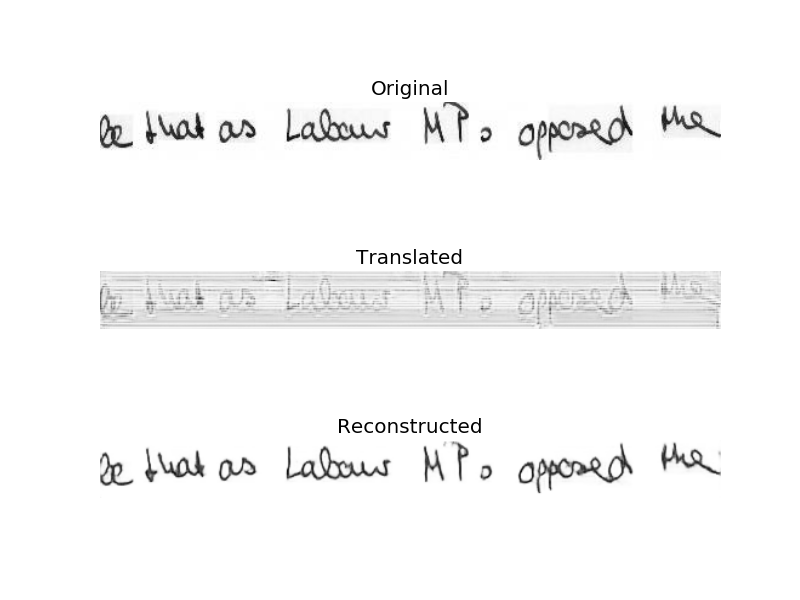 Original
be that as Labour MPs opposed the
Translated
be that as Labour MPs opposed the
Reconstructed
be that as Labour MPs opposed the